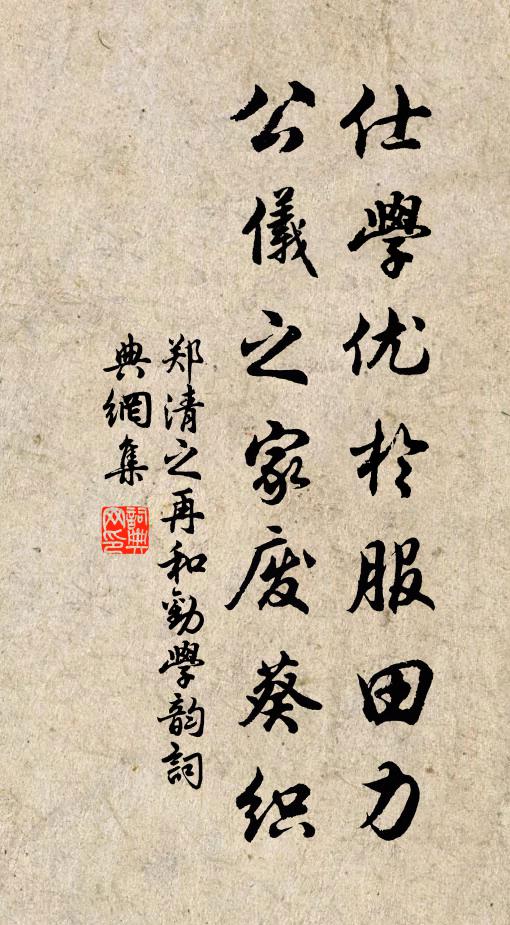 仕學优於服田力
公儀之家废葵织
郑清之再和勸學韵詞
典網集
詞典网印